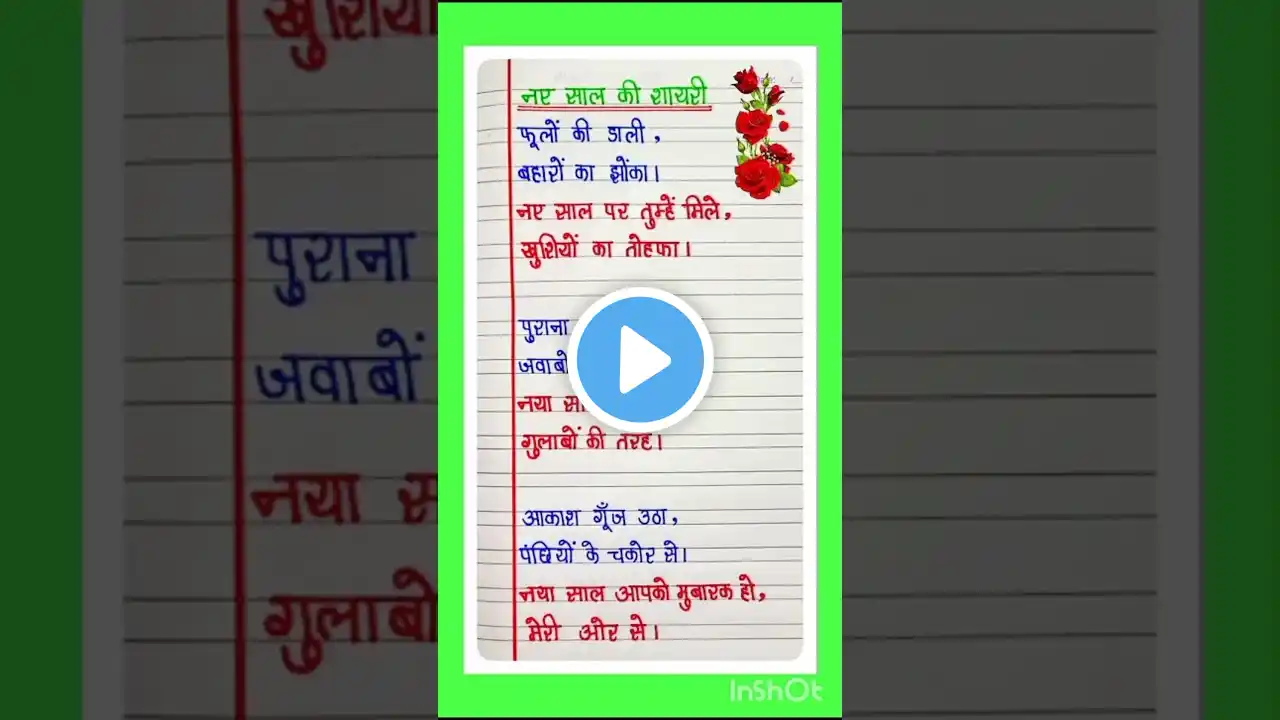 नए साल की शायरी
फूलों की डाली,
बहारों का झोंका।
नए साल पर तुम्हें मिले,
खुशियों का तोहफा।
पुराना
जवाबों
नया
गुलाबों की तरह।
आकाश गूँज उठा,
पंछियों के चकोर से।
नया साल आपको मुबारक हो,
मेरी ओर से।
InShOt
खुशियों
पुराना
जवाबों
नया
गुलाबों